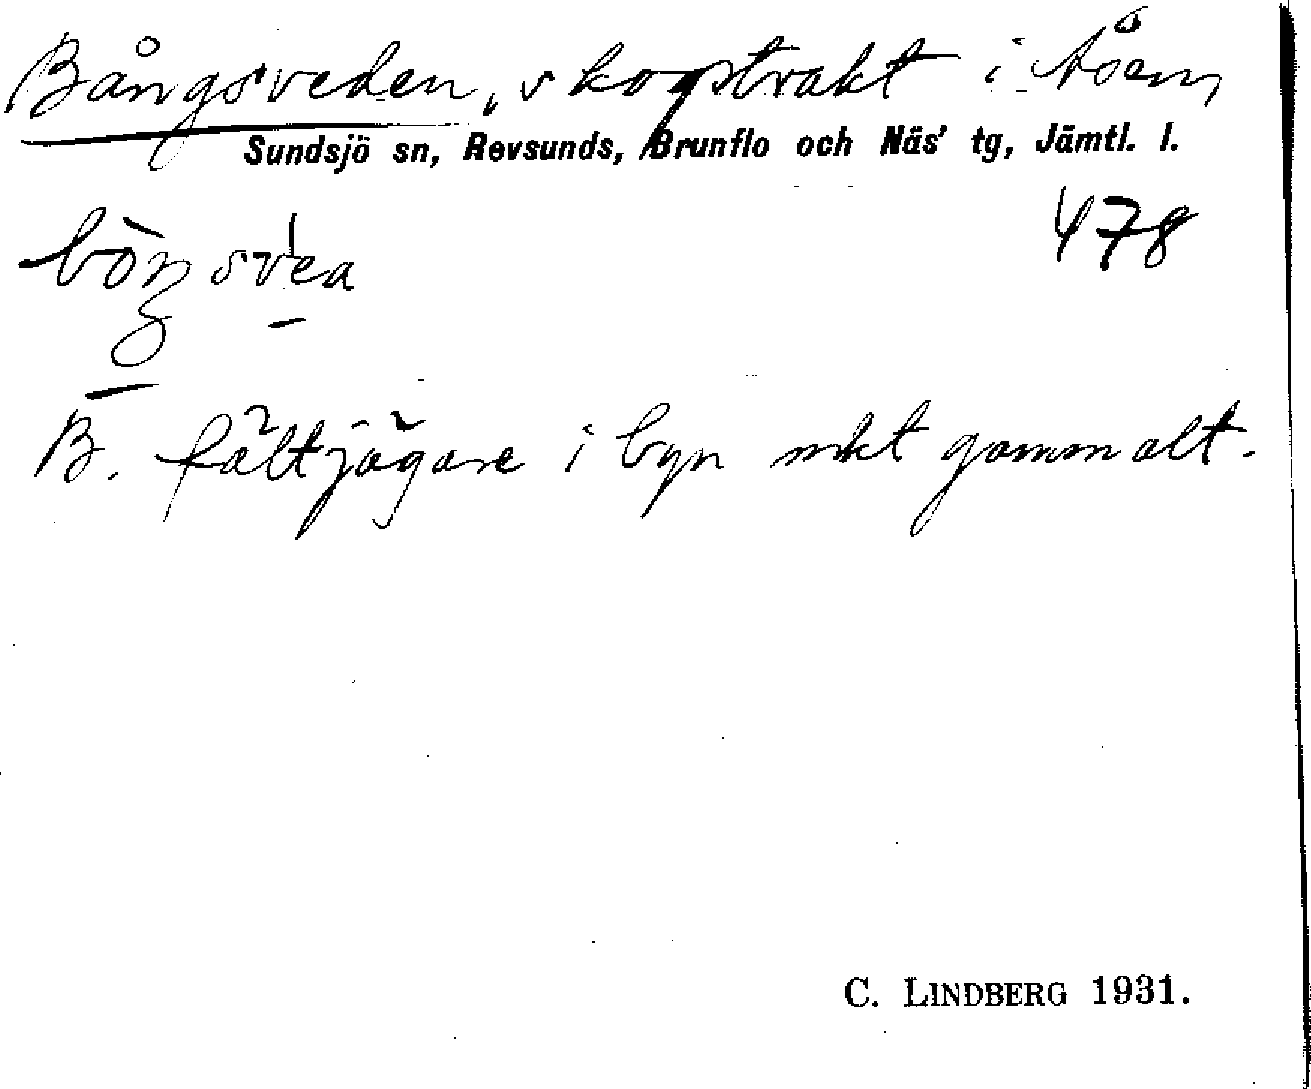 Bångsveden, skogstrakt i Åsen,
Sundsjö sn, Revsunds, Brunflo och Näs' tg, Jämtl. l.
478
bòŋsvea
B. fältjägare i byn mkt gammalt.
C. LINDBERG 1931.